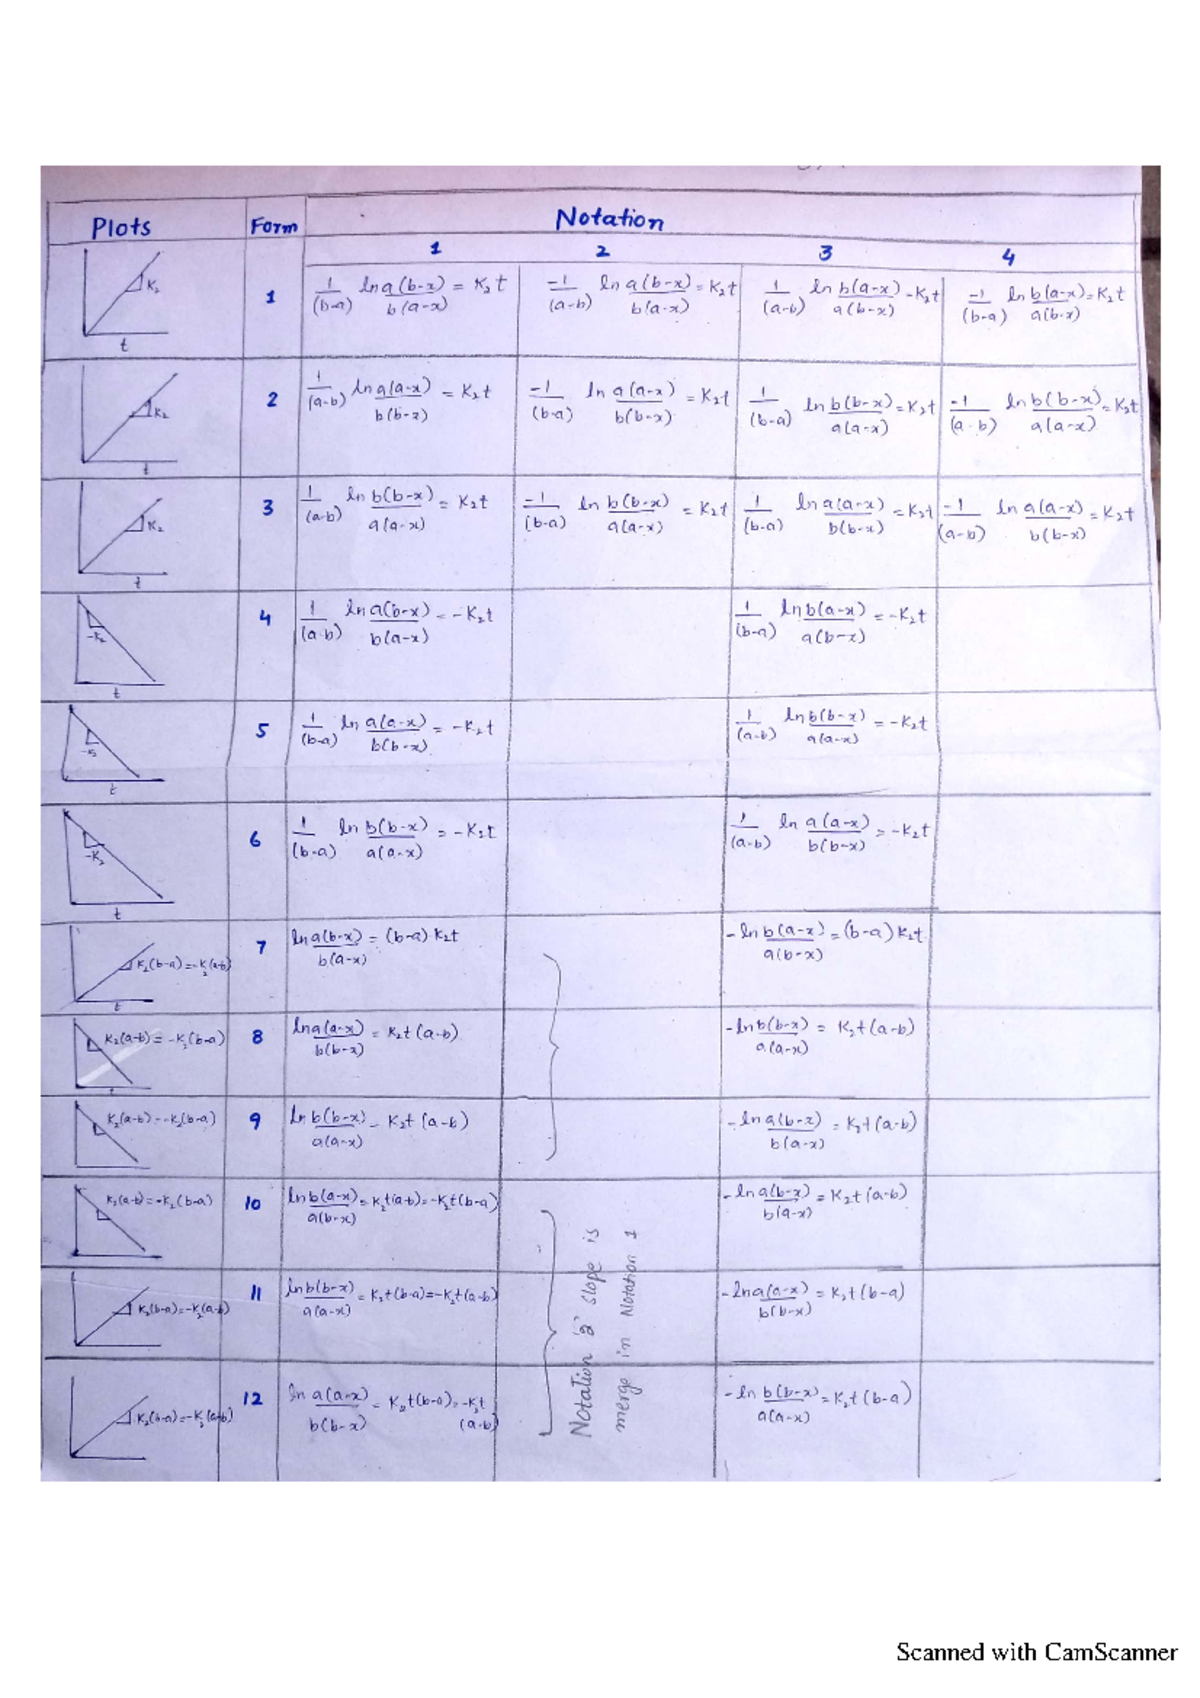 Plots Form Notation
1 2 3 4
K₂ 1 1/(b-a) ln a(b-x)/b(a-x) = K₂t -1/(a-b) ln a(b-x)/b(a-x) = K₂t 1/(a-b) ln b(a-x)/a(b-x) - K₂t -1/(b-a) ln b(a-x)/a(b-x) = K₂t
t
K₂ 2 1/(a-b) ln a(a-x)/b(b-x) = K₂t -1/(b-a) ln a(a-x)/b(b-x) = K₂t 1/(b-a) ln b(b-x)/a(a-x) = K₂t -1/(a-b) ln b(b-x)/a(a-x) = K₂t
t
K₂ 3 1/(a-b) ln b(b-x)/a(a-x) = K₂t -1/(b-a) ln b(b-x)/a(a-x) = K₂t 1/(b-a) ln a(a-x)/b(b-x) = K₂t -1/(a-b) ln a(a-x)/b(b-x) = K₂t
t
-K₂ 4 1/(a-b) ln a(b-x)/b(a-x) = -K₂t 1/(b-a) ln b(a-x)/a(b-x) = -K₂t
t
5 1/(b-a) ln a(a-x)/b(b-x) = -K₂t 1/(a-b) ln b(b-x)/a(a-x) = -K₂t
t
-K₂ 6 1/(b-a) ln b(b-x)/a(a-x) = -K₂t 1/(a-b) ln a(a-x)/b(b-x) = -K₂t
t
K₂(b-a)=-K₂(a-b) 7 ln a(b-x)/b(a-x) = (b-a) K₂t -ln b(a-x)/a(b-x) = (b-a) K₂t
t
K₂(a-b)= -K₂(b-a) 8 ln a(a-x)/b(b-x) = K₂t (a-b) -ln b(b-x)/a(a-x) = K₂t (a-b)
t
K₂(a-b)--K₂(b-a) 9 ln b(b-x)/a(a-x) - K₂t (a-b) -ln a(b-x)/b(a-x) = K₂t (a-b)
K₂(a-b)=-K₂(b-a) 10 ln b(a-x)/a(b-x) = K₂t(a-b)=-K₂t(b-a) -ln a(b-x)/b(a-x) = K₂t (a-b)
K₂(b-a)=-K₂(a-b) 11 ln b(b-x)/a(a-x) = K₂t(b-a)=-K₂t(a-b) -ln a(a-x)/b(b-x) = K₂t (b-a)
K₂(b-a)=-K₂(a-b) 12 ln a(a-x)/b(b-x) = K₂t(b-a)=-K₂t (a-b) -ln b(b-x)/a(a-x) = K₂t (b-a)
Notation '2' slope is
merge in Notation 1
Scanned with CamScanner